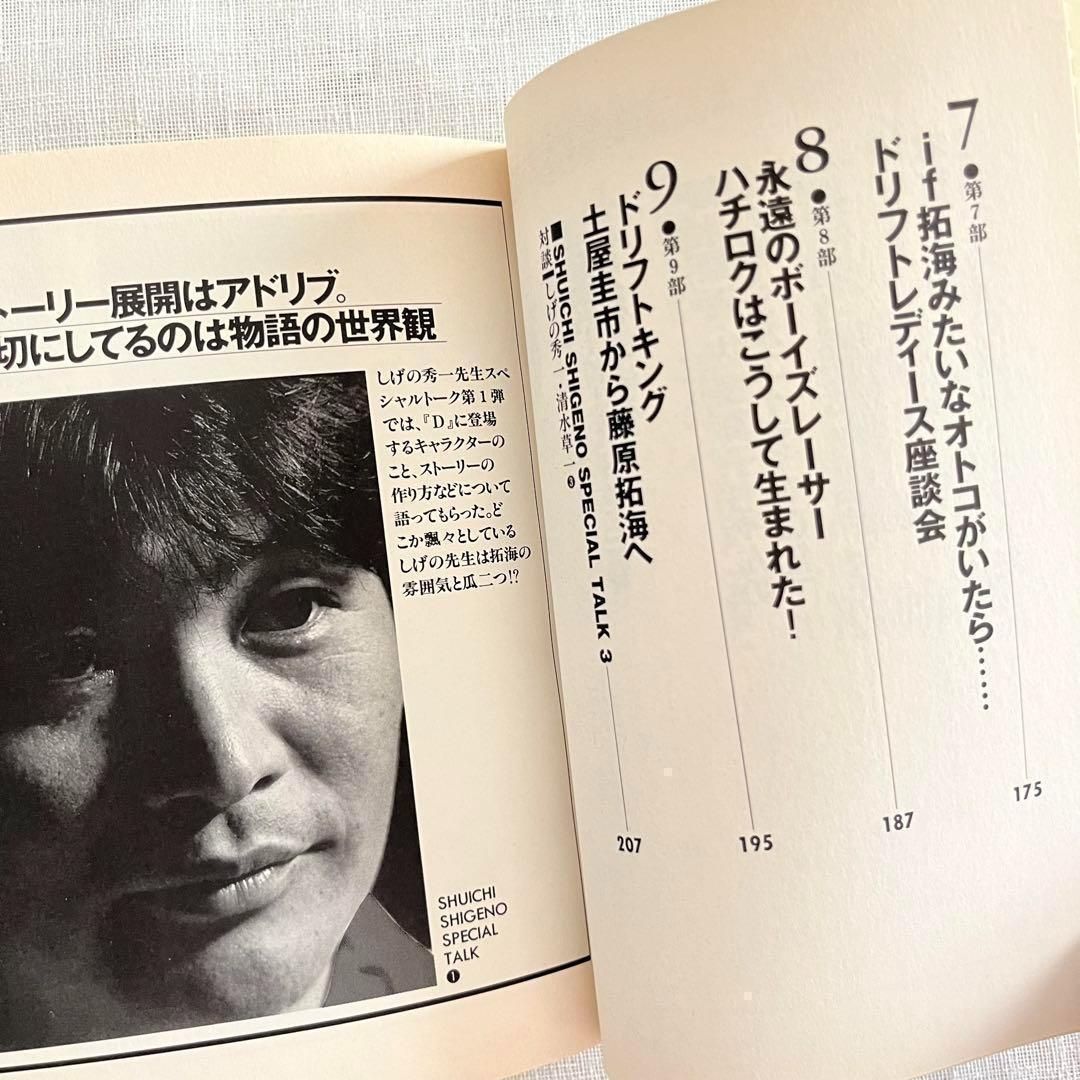 トーリー展開はアドリブ。
切にしてるのは物語の世界観
しげの秀一先生スペ
シャルトーク第1弾
では、『D』に登場
するキャラクターの
こと、ストーリーの
作り方などについて
語ってもらった。ど
こか飄々としている
しげの先生は拓海の
雰囲気と瓜二つ!?
SHUICHI
SHIGENO
SPECIAL
TALK
❶
7●第7部
if拓海みたいなオトコがいたら……
175
ドリフトレディース座談会
187
8●第8部
永遠のボーイズレーサー
ハチロクはこうして生まれた!
195
9●第9部
ドリフトキング
土屋圭市から藤原拓海へ
■SHUICHI SHIGENO SPECIAL TALK 3
207
対談 しげの秀一・清水草一❸